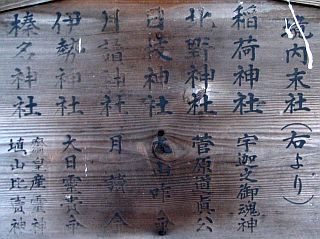 境内末社(右より)
稲荷神社 宇迦之御魂神
北野神社 菅原道真公
日枝神社 大山咋命
月読神社 月読命
伊勢神社 大日孁貴命
榛名神社 火産霊神
埴山比売神